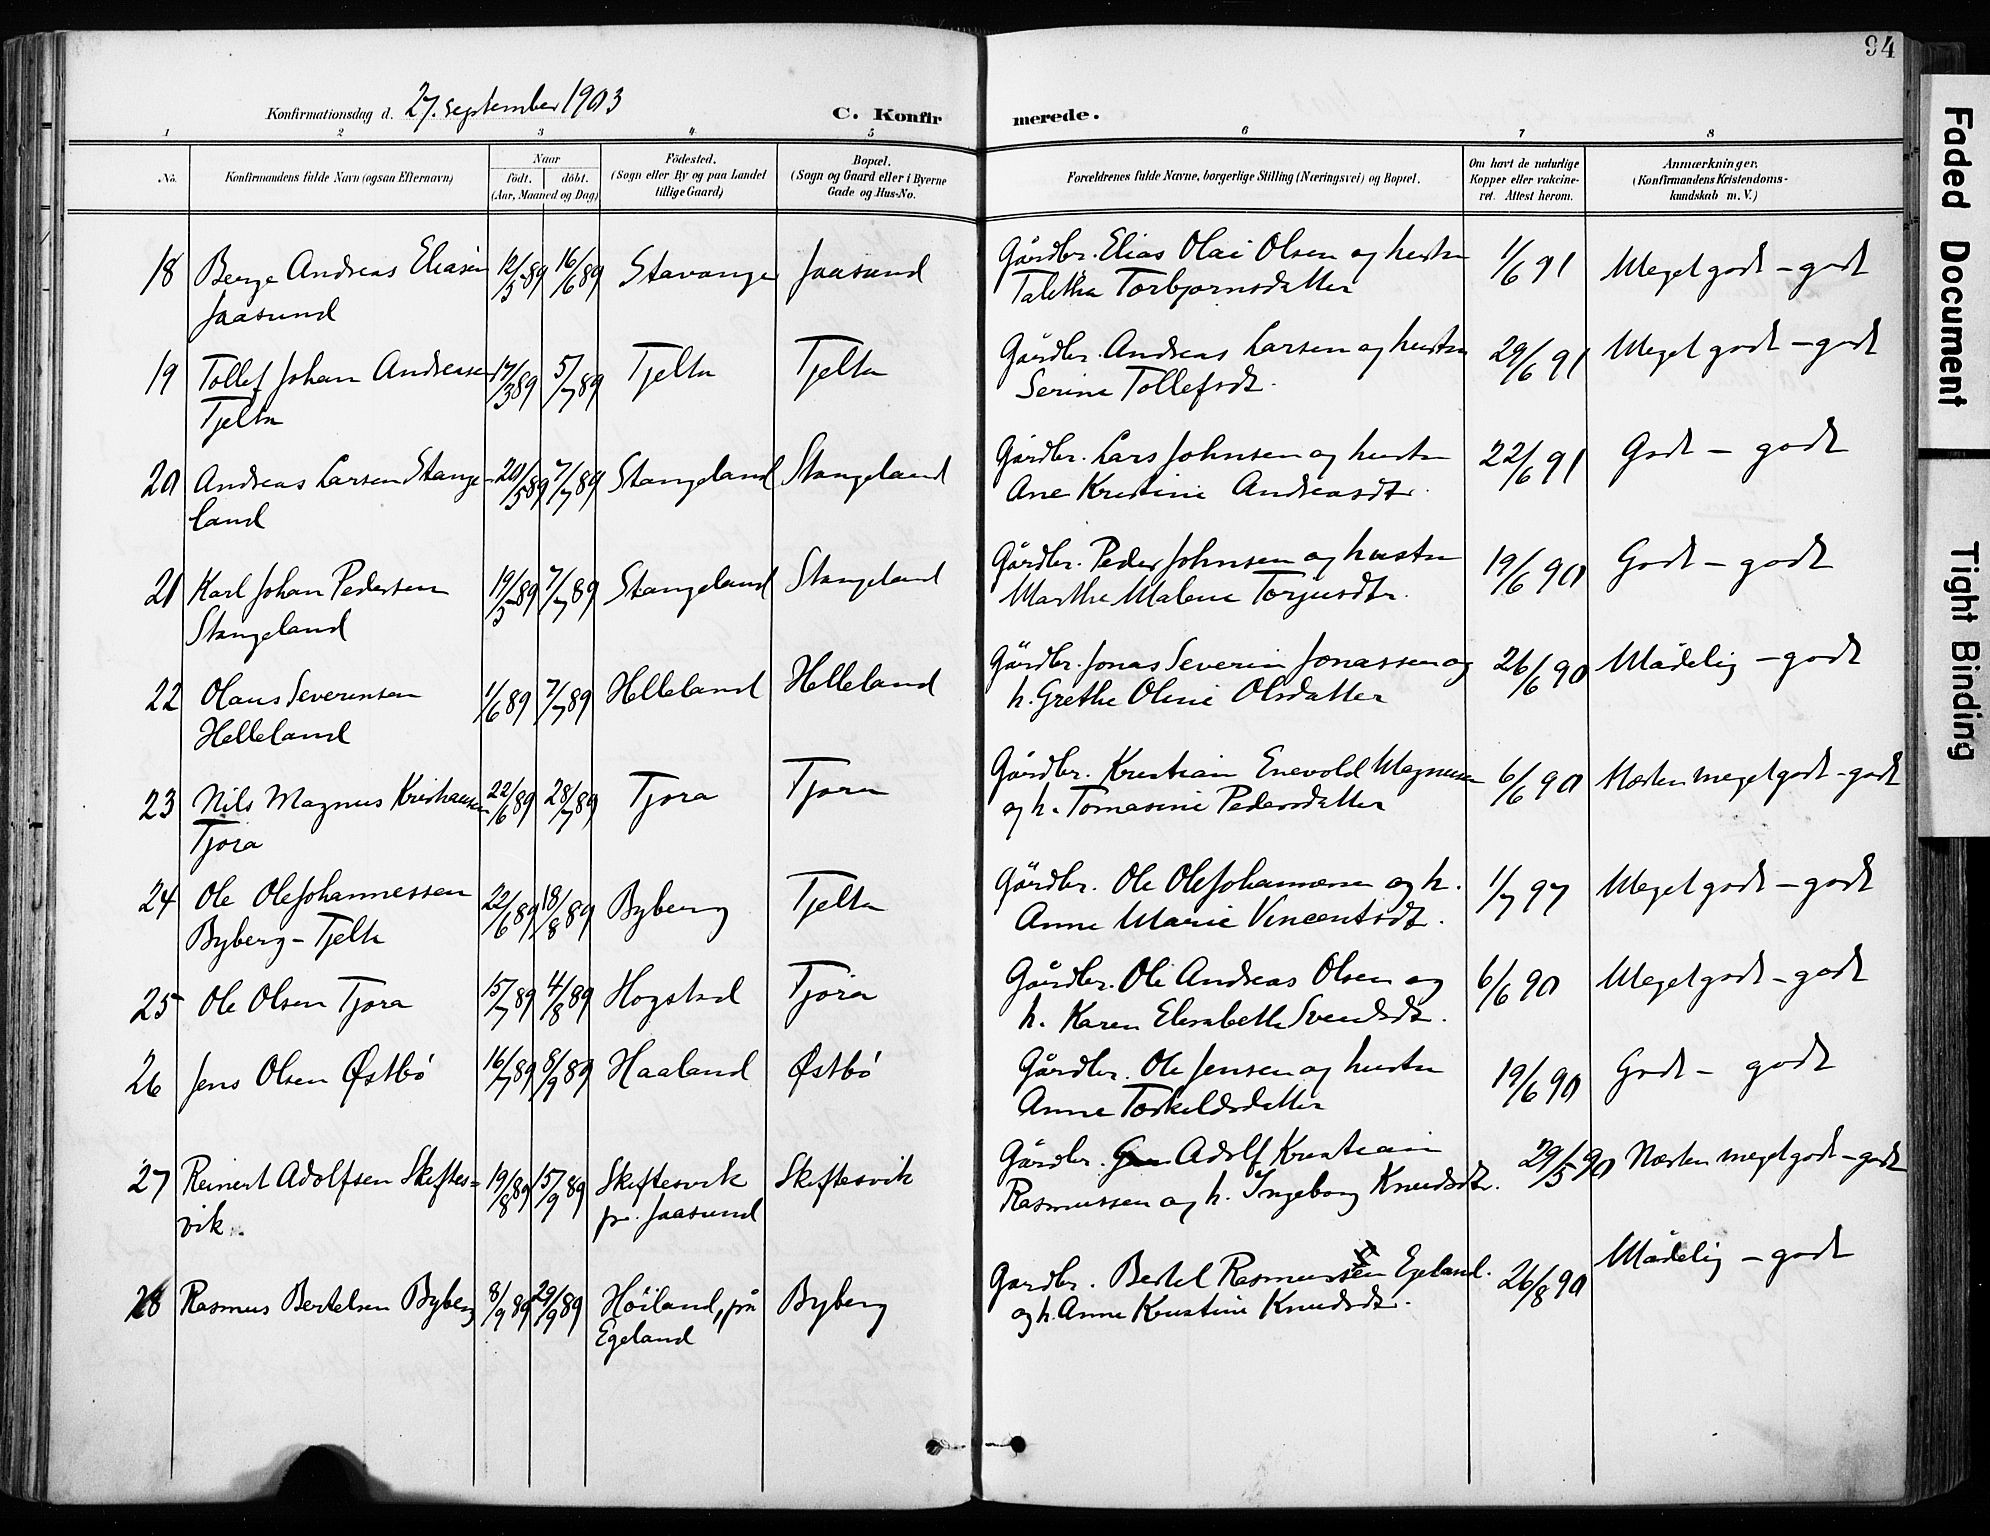 94
Konfirmationsdag d. 27. September 1903
C. Konfirmerede.
1 2 3 4 5 6 7 8
No.
Konfirmandens fulde Navn (ogsaa Efternavn)
Naar
Födt. döbt.
(Aar, Maaned og Dag)
Födested.
(Sogn eller By og paa Landet
tillige Gaard)
Bopæl.
(Sogn og Gaard eller i Byerne
Gade og Hus-No.
Forældrenes fulde Navne, borgerlige Stilling (Næringsvei) og Bopæl.
Om havt de naturlige
Kopper eller vakcine-
ret. Attest herom.
Anmærkninger.
(Konfirmandens Kristendoms-
kundskab m. V.)
18 Berge Andreas Eliasen 12/5 89 16/6 89 Stavanger Jaasund Gårdbr. Elias Olai Olsen og hustru 1/6 91 Meget godt – godt
Jaasund Talitha Torbjørnsdatter
19 Tollef Johan Andreasen 17/3 89 5/7 89 Tjelta Tjelta Gårdbr. Andreas Larsen og hustru 29/6 91 Meget godt – godt
Tjelta Serine Tollefsdt.
20 Andreas Larsen Stange- 20/5 89 7/7 89 Stangeland Stangeland Gårdbr. Lars Johnsen og hustru 22/6 91 Godt – godt
land Ane Kristine Andreasdtr.
21 Karl Johan Pedersen 19/5 89 7/7 89 Stangeland Stangeland Gårdbr. Peder Johnsen og hustru 19/6 90 Godt – godt
Stangeland Marthe Malene Torjusdtr.
22 Olaus Severinsen 1/6 89 7/7 89 Helleland Helleland Gårdbr. Jonas Severin Jonassen og 26/6 90 Mådelig – godt
Helleland h. Grethe Oline Olsdatter
23 Nils Magnus Kristiansen 22/6 89 28/7 89 Tjora Tjora Gårdbr. Kristian Enevold Magnusen 6/6 90 Næsten meget godt – godt
Tjora og h. Tomasine Pedersdatter
24 Ole Ole Johannessen 22/6 89 18/8 89 Byberg Tjelta Gårdbr. Ole Ole Johannesen og h. 1/7 97 Meget godt – godt
Byberg – Tjelta Anne Marie Vincentsdt.
25 Ole Olsen Tjora 15/7 89 4/8 89 Hogstad Tjora Gårdbr. Ole Andreas Olsen og 6/6 90 Meget godt – godt
h. Karen Elisabeth Svendsdt.
26 Jens Olsen Østbö 16/7 89 8/9 89 Haaland Østbö Gårdbr. Ole Jensen og hustru 19/6 90 Godt – godt
Anne Torkeldsdatter
27 Reinert Adolfsen Skiftes= 19/8 89 15/9 89 Skiftesvik Skiftesvik Gårdbr. Adolf Kristian 29/5 90 Næsten meget godt – godt
vik. pr. Jaasund Rasmussen og h. Ingeborg Knudsdtr.
28 Rasmus Bertelsen Byberg 8/9 89 29/9 89 Höiland, på Byberg Gardbr. Bertel Rasmussen Egeland. 26/8 90 Mådelig – godt
Egeland og h. Anne Kristine Knudsdt.
Faded Document
Tight Binding